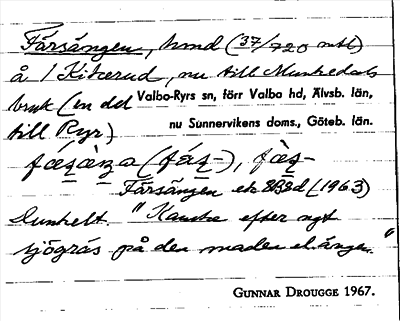 Färsängen, hmd (37/720 mtl)
å 1 Kikerud, nu till Munkedals
bruk (en del Valbo-Ryrs sn, förr Valbo hd, Älvsb. län,
till Ryr) nu Sunnervikens doms., Göteb. län.
Färsängen ek 8B3d (1963)
Dunkelt. "Kanske efter ngt
sjögräs på den maden el. ängen."
GUNNAR DROUGGE 1967.